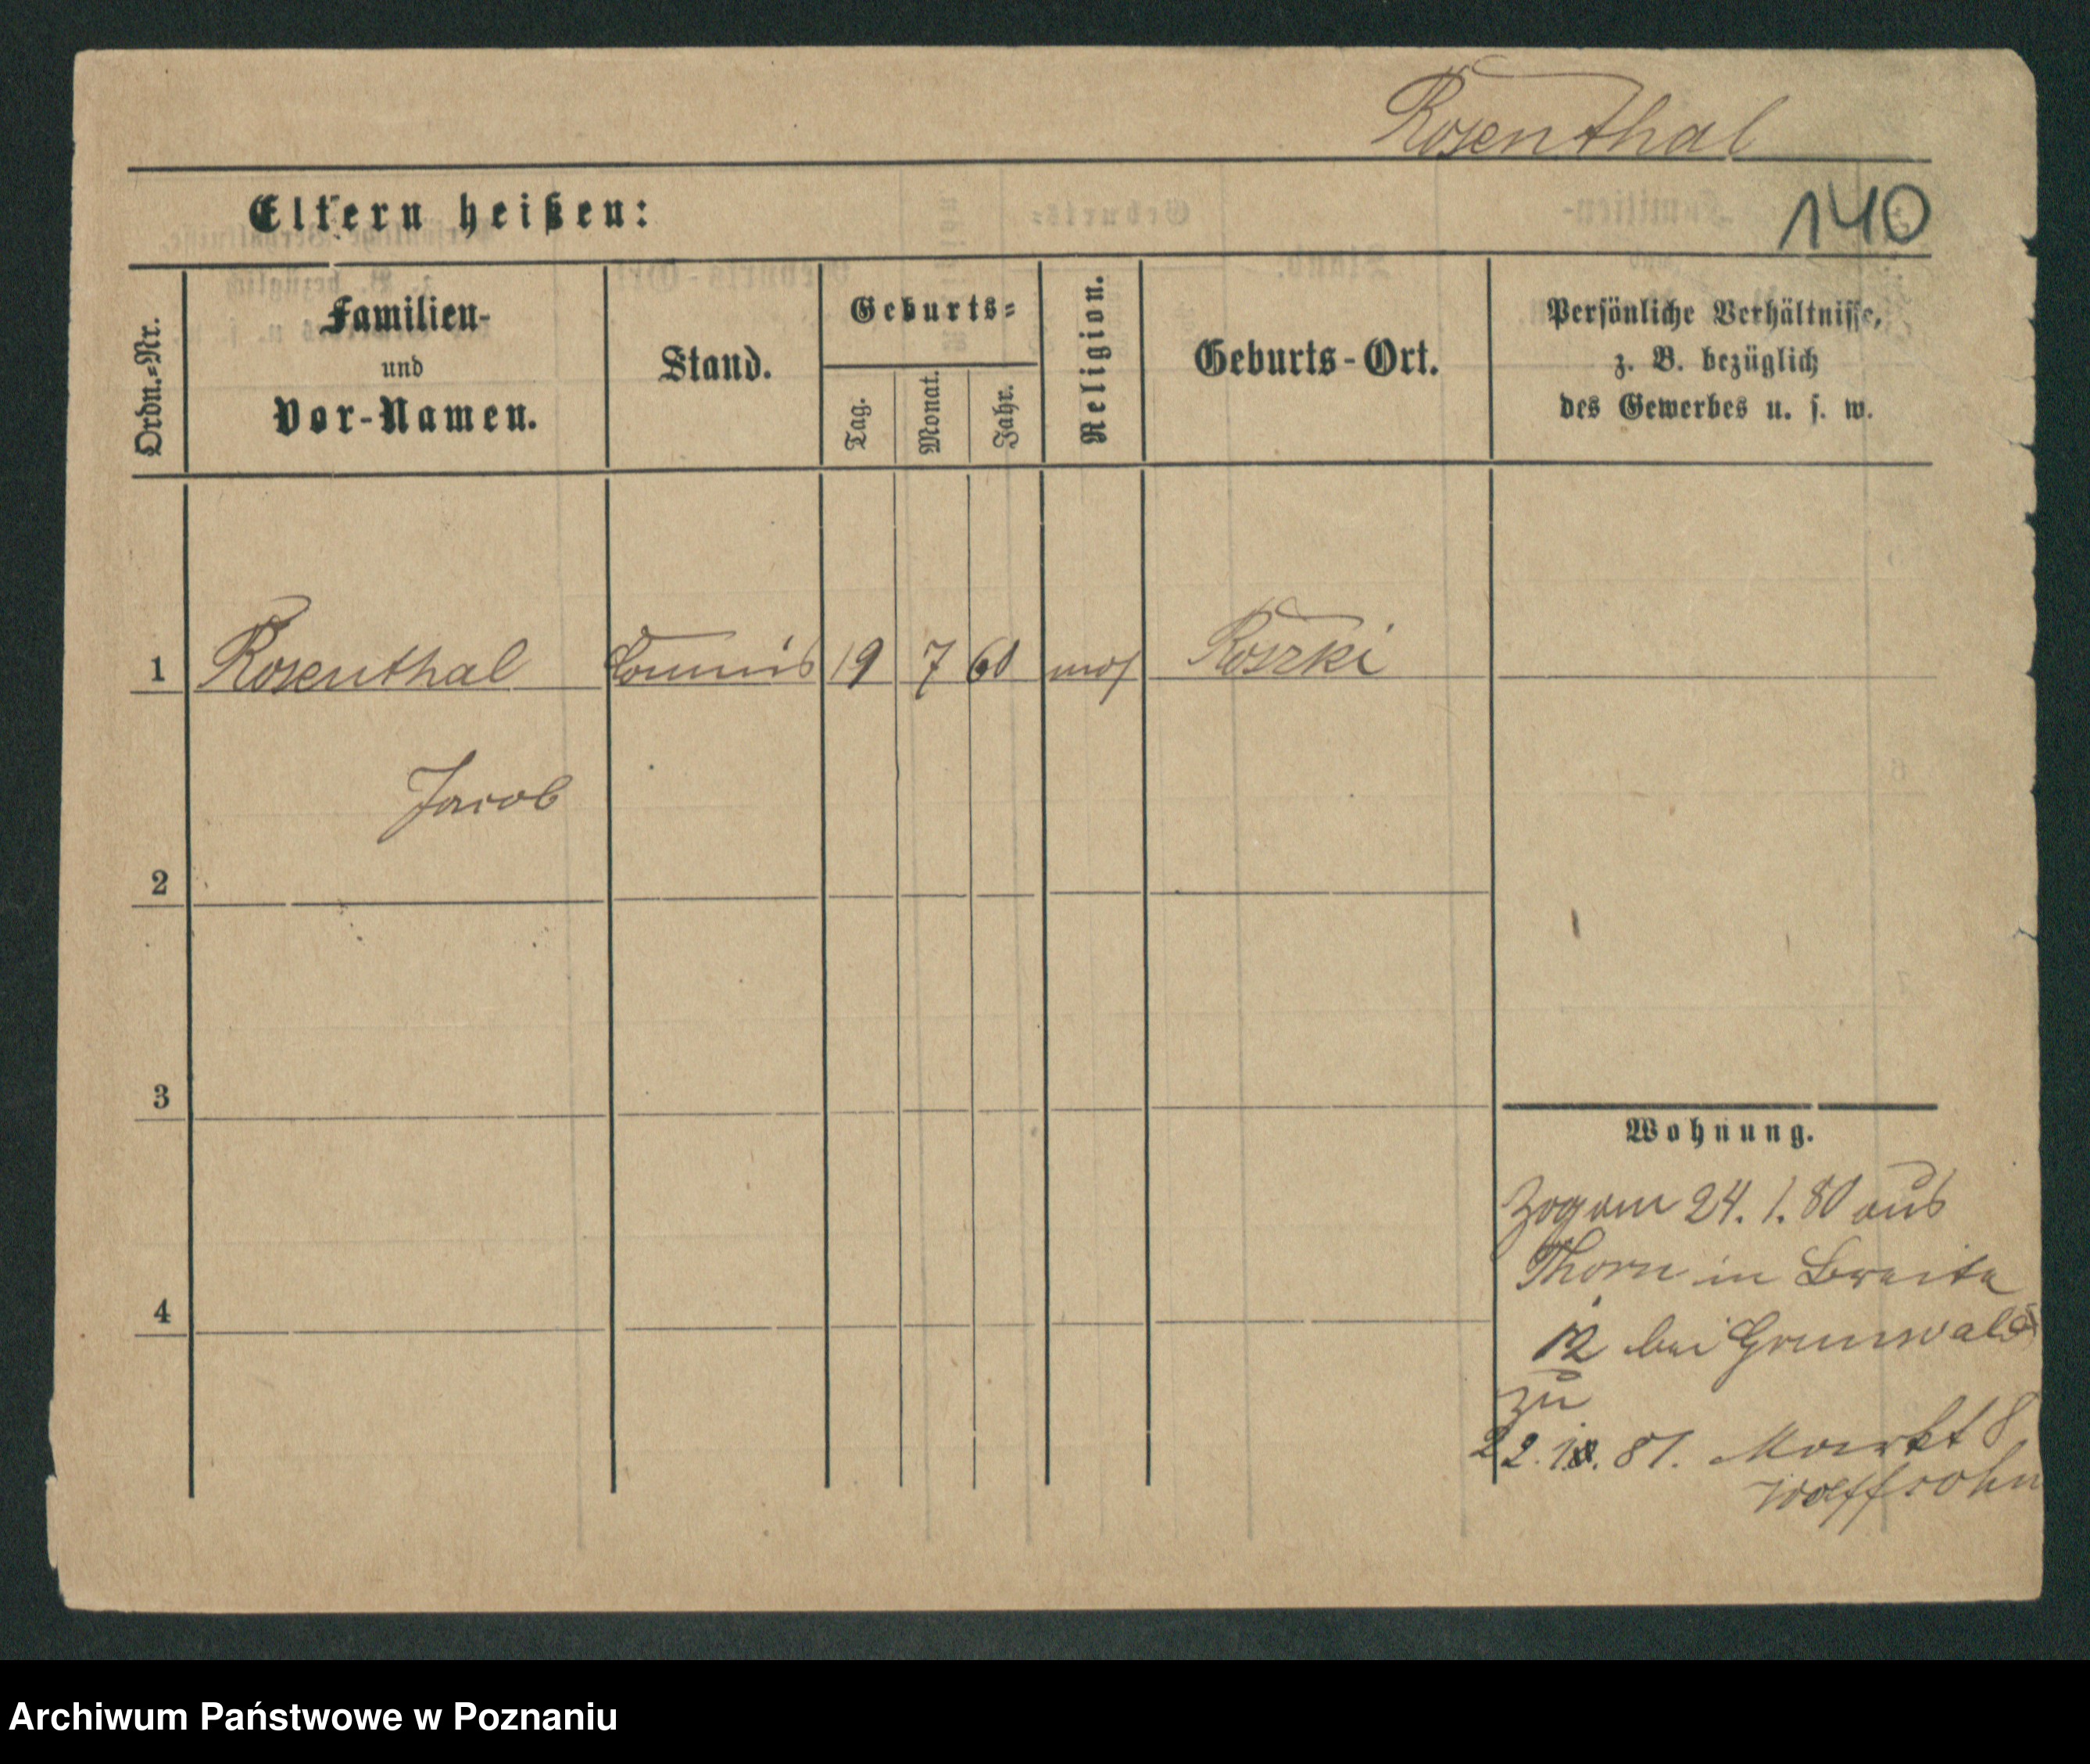 Rosenthal
Eltern heißen:
140
Ordn.=Nr.
Familien-
und
Vor-Namen.
Stand.
Geburts=
Tag.
Monat.
Jahr.
Religion.
Geburts-Ort.
Persönliche Verhältnisse,
z. B. bezüglich
des Gewerbes u. s. w.
1 Rosenthal Commis 19 7 60 mos Roszki
Jacob
2
3
4
Wohnung.
Zog am 24. 1. 80 aus
Thorn in Breite
12 bei Grunwald
zu
22. 81. Markt 8
Wolffsohn
Archiwum Państwowe w Poznaniu